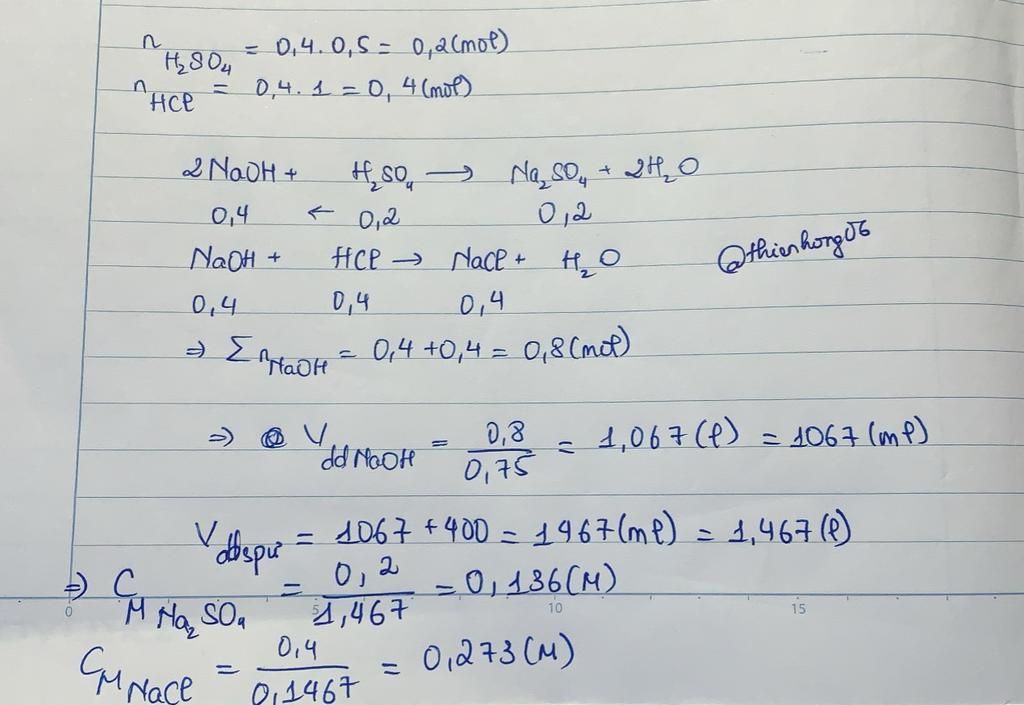 n H₂SO₄ = 0,4. 0,5 = 0,2 (mol)
n HCl = 0,4. 1 = 0,4 (mol)
2NaOH + H₂SO₄ → Na₂SO₄ + 2H₂O
0,4 ← 0,2 0,2
NaOH + HCl → NaCl + H₂O
@thienhong06
0,4 0,4 0,4
⇒ Σ n NaOH = 0,4 + 0,4 = 0,8 (mol)
⇒ V dd NaOH = 0,8 / 0,75 = 1,067 (l) = 1067 (ml)
V ddspứ = 1067 + 400 = 1467 (ml) = 1,467 (l)
⇒ C M Na₂SO₄ = 0,2 / 1,467 = 0,136 (M)
0 5 10 15
C M NaCl = 0,4 / 0,1467 = 0,273 (M)